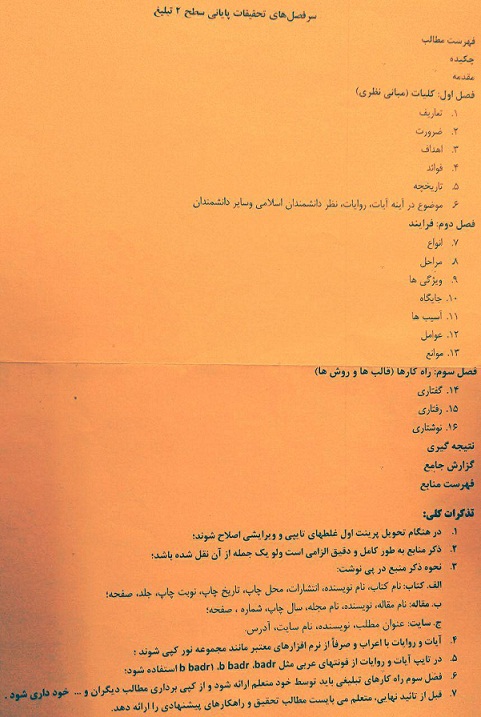 سرفصل‌های تحقیقات پایانی سطح ۲ تبلیغ
فهرست مطالب
چکیده
مقدمه
فصل اول: کلیات (مبانی نظری)
۱. تعاریف
۲. ضرورت
۳. اهداف
۴. فوائد
۵. تاریخچه
۶. موضوع در آینه آیات، روایات، نظر دانشمندان اسلامی وسایر دانشمندان
فصل دوم: فرایند
۷. انواع
۸. مراحل
۹. ویژگی ها
۱۰. جایگاه
۱۱. آسیب ها
۱۲. عوامل
۱۳. موانع
فصل سوم: راه کارها (قالب ها و روش ها)
۱۴. گفتاری
۱۵. رفتاری
۱۶. نوشتاری
نتیجه گیری
گزارش جامع
فهرست منابع
تذکرات کلی:
۱. در هنگام تحویل پرینت اول غلطهای تایپی و ویرایشی اصلاح شوند؛
۲. ذکر منابع به طور کامل و دقیق الزامی است ولو یک جمله از آن نقل شده باشد؛
۳. نحوه ذکر منبع در پی نوشت:
الف. کتاب: نام کتاب، نام نویسنده، انتشارات، محل چاپ، تاریخ چاپ، نوبت چاپ، جلد، صفحه؛
ب. مقاله: نام مقاله، نویسنده، نام مجله، سال چاپ، شماره ، صفحه؛
ج. سایت: عنوان مطلب، نویسنده، نام سایت، آدرس.
۴. آیات و روایات با اعراب و صرفاً از نرم افزارهای معتبر مانند مجموعه نور کپی شوند ؛
۵. در تایپ آیات و روایات از فونتهای عربی مثل b badr1 ،b badr ،badr استفاده شود؛
۶. فصل سوم راه کارهای تبلیغی باید توسط خود متعلم ارائه شود و از کپی برداری مطالب دیگران و ... خود داری شود .
۷. قبل از تائید نهایی، متعلم می بایست مطالب تحقیق و راهکارهای پیشنهادی را ارائه دهد.